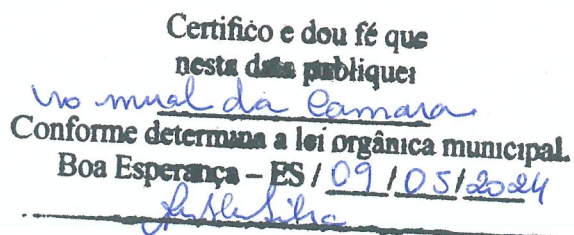 Certifico e dou fé que
nesta data publiquei
no mural da Camara
Conforme determina a lei orgânica municipal.
Boa Esperança – ES / 09 / 05 / 2024